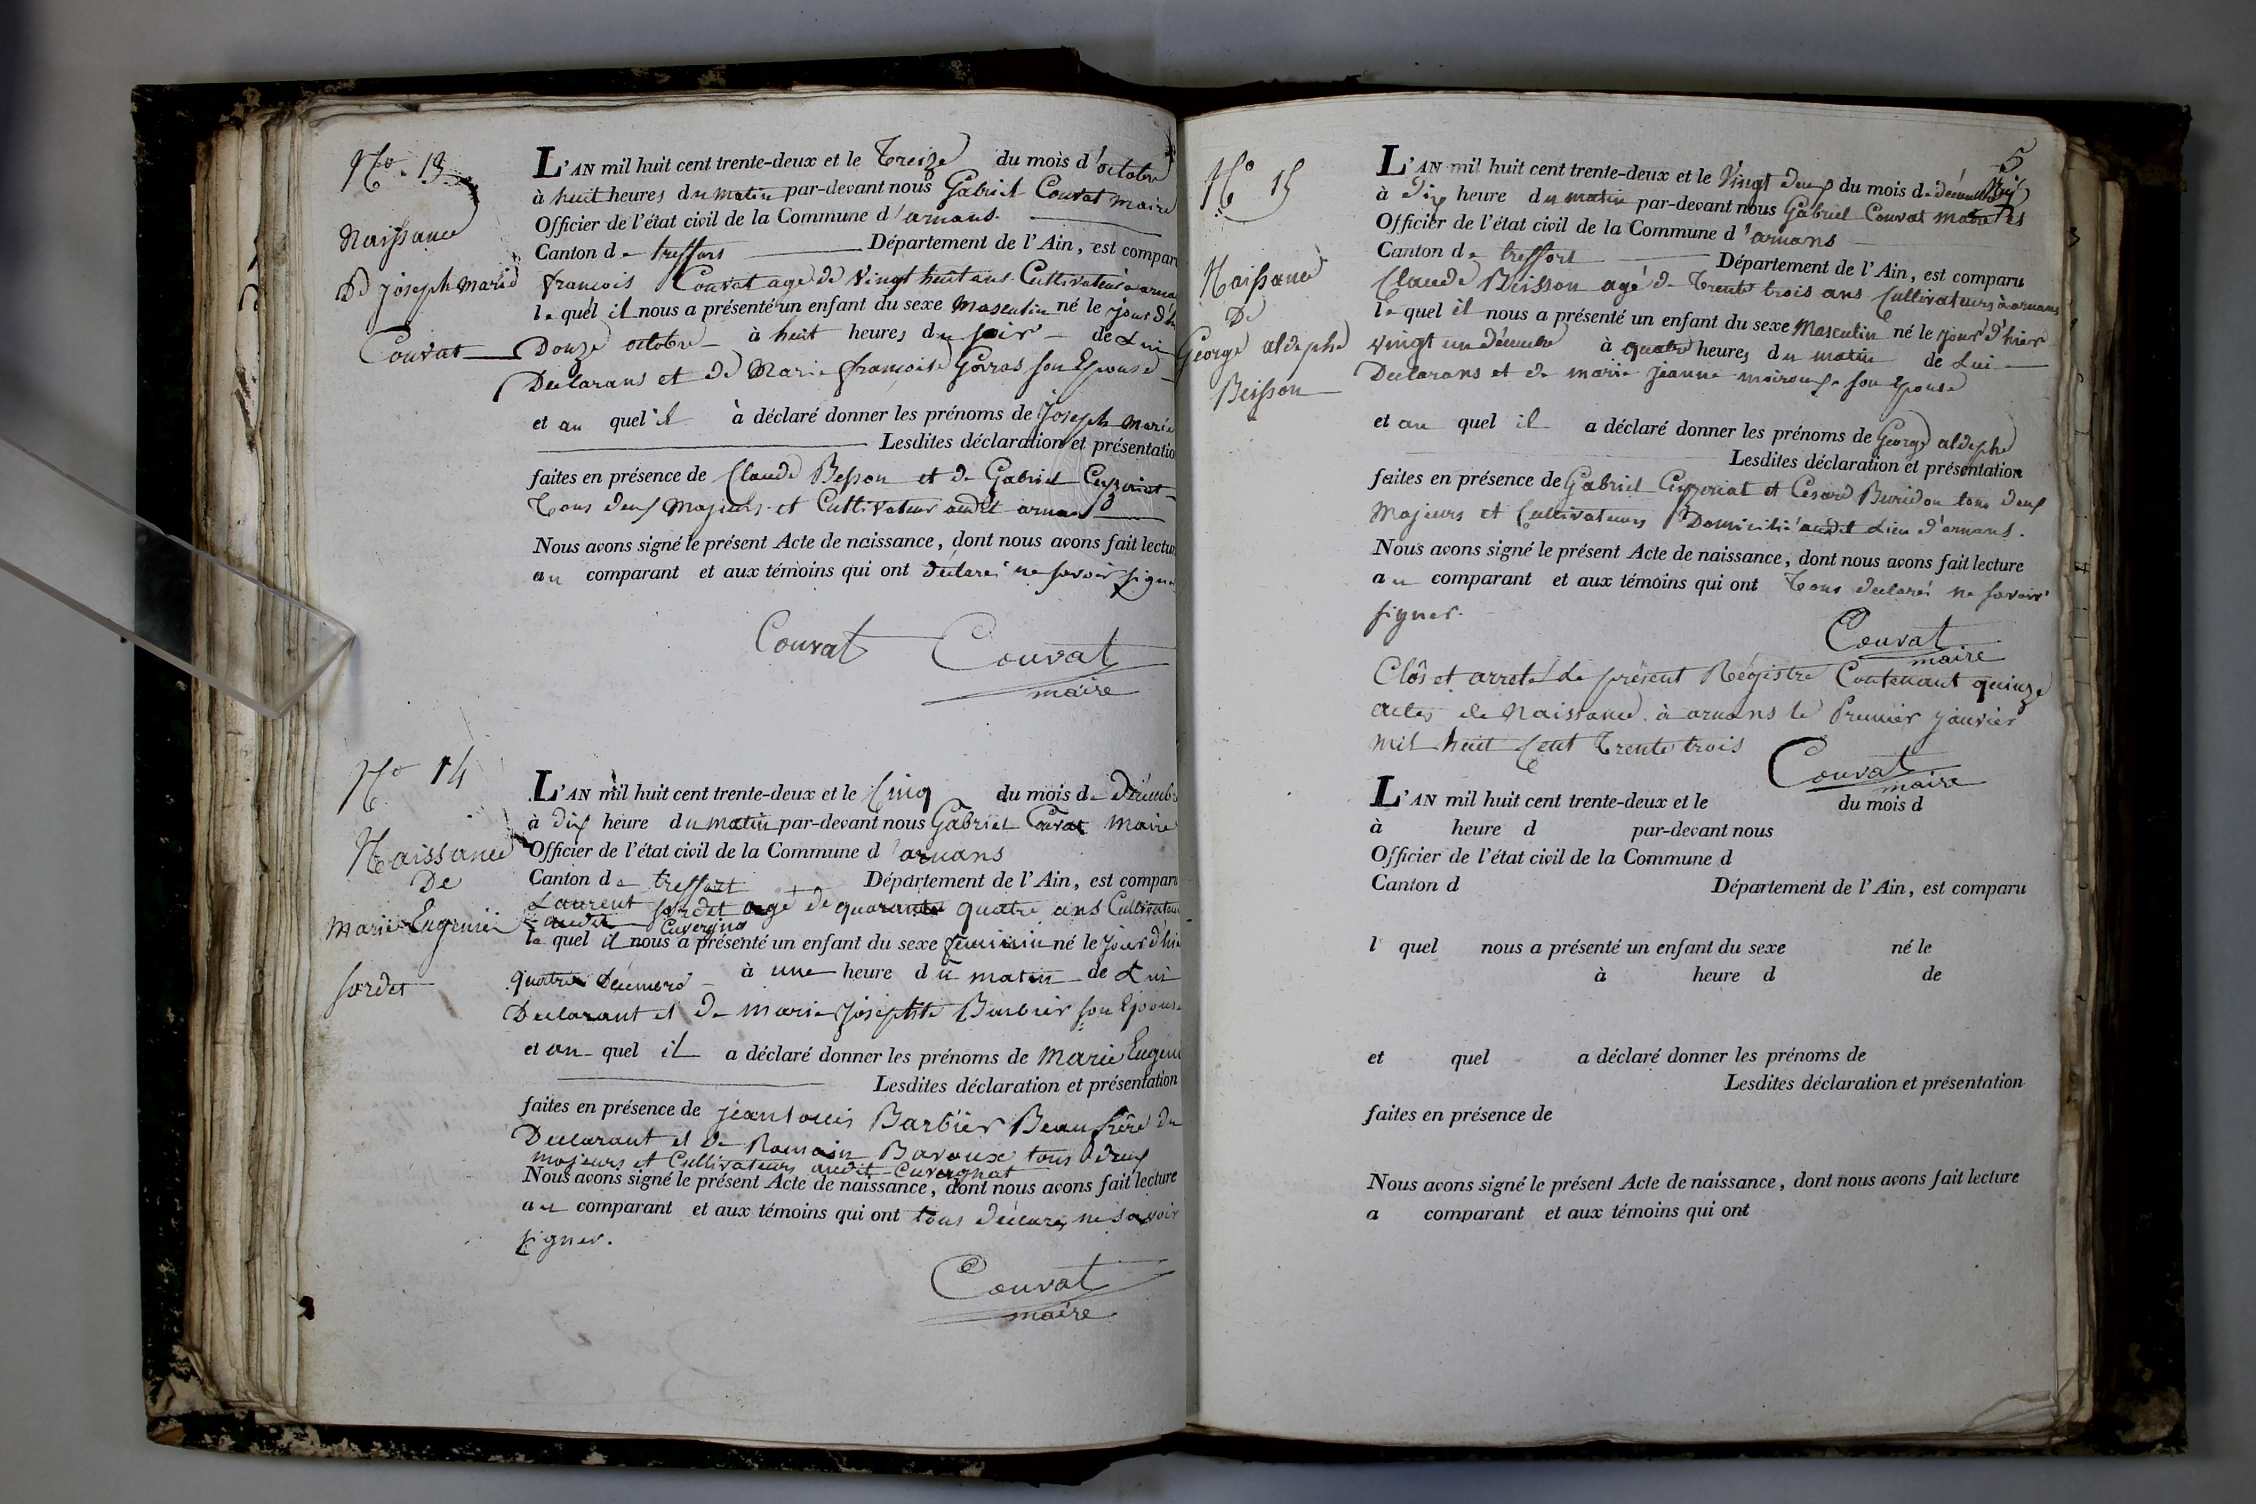 No. 13
Naissance
De joseph marie
Couvat
L'AN mil huit cent trente-deux et le Treize du mois d'octobre
à huit heures du matin par-devant nous Gabriel Couvat maire
Officier de l'état civil de la Commune d'arnans.
Canton de treffort Département de l'Ain, est compar
francois Couvat age de Vingt huit ans Cultivateur à arna
le quel il nous a présenté un enfant du sexe Masculin né le jour d'h
Douze octobre à huit heures du soir de Lui
Declarans et de Marie françoise Gorras son Epouse
et au quel il à déclaré donner les prénoms de Joseph Marie
Lesdites déclaration et présentatio
faites en présence de Claude Besson et de Gabriel Ceyzeriat
Tous deux Majeurs et Cultivateur audit arnans
Nous avons signé le présent Acte de naissance, dont nous avons fait lectur
au comparant et aux témoins qui ont déclaré ne savoir signe
Couvat Couvat
maire
No 14
Naissance
De
Marie Eugenie
sordet
L'AN mil huit cent trente-deux et le Cinq du mois de Décemb
à dix heure du matin par-devant nous Gabriel Couvat Maire
Officier de l'état civil de la Commune d'arnans
Canton de treffort Département de l'Ain, est comparu
Laurent sordet agé de quarante quatre ans Cultivateur
audit Cuvergna
le quel il nous a présenté un enfant du sexe feminin né le jour d'hi
quatre Décembre à une heure du matin de Lui
Declarant et De marie Josephte Barbier son Epouse
et au quel il a déclaré donner les prénoms de Marie Eugeni
Lesdites déclaration et présentation
faites en présence de jean louis Barbier Beau frère du
Declarant et De Romain Baroux tous deux
majeurs et Cultivateurs audit Cuvergnat
Nous avons signé le présent Acte de naissance, dont nous avons fait lecture
au comparant et aux témoins qui ont tous déclarez ne savoir
signer.
Couvat
maire
5
No 15
Naissance
De
George aldephe
Beisson
L'AN mil huit cent trente-deux et le Vingt deux du mois de décembre
à Dix heure du matin par-devant nous Gabriel Couvat maire
Officier de l'état civil de la Commune d'arnans
Canton de treffort Département de l'Ain, est comparu
Claude Beisson agé de Trente trois ans Cultivateurs à arnans
le quel il nous a présenté un enfant du sexe Masculin né le jour d'hier
vingt un décembre à quatre heures du matin de Lui
Declarans et de marie jeanne moiroux son Epouse
et au quel il a déclaré donner les prénoms de George aldephe
Lesdites déclaration et présentation
faites en présence de Gabriel Ceyzeriat et Cesard Buridon tous deux
Majeurs et Cultivateurs Domicilié audit Lieu d'arnans.
Nous avons signé le présent Acte de naissance, dont nous avons fait lecture
au comparant et aux témoins qui ont Tous declaré ne savoir
signer.
Couvat
maire
Clôs et arreté le présent Régistre Contenant quinze
actes de Naissance à arnans le Premier janvier
mil huit Cent Trente trois
Couvat
maire
L'AN mil huit cent trente-deux et le du mois d
à heure d par-devant nous
Officier de l'état civil de la Commune d
Canton d Département de l'Ain, est comparu
l quel nous a présenté un enfant du sexe né le
à heure d de
et quel a déclaré donner les prénoms de
Lesdites déclaration et présentation
faites en présence de
Nous avons signé le présent Acte de naissance, dont nous avons fait lecture
a comparant et aux témoins qui ont